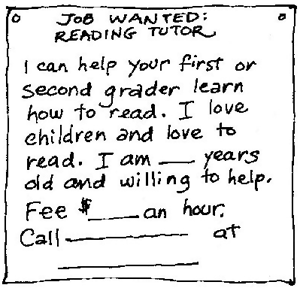 JOB WANTED:
READING TUTOR
I can help your first or
second grader learn
how to read. I love
children and love to
read. I am ___ years
old and willing to help.
Fee $____ an hour.
Call __________ at
____________